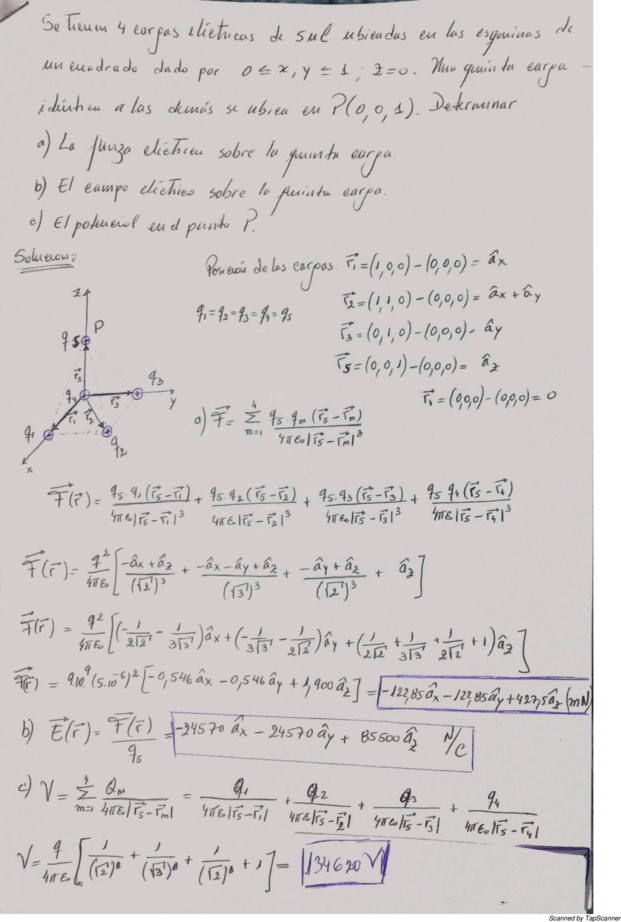 Se tienen 4 cargas eléctricas de 5uC ubicadas en las esquinas de
un cuadrado dado por 0 ≤ x, y ≤ 1 ; z=0. Una quinta carga
idéntica a las demás se ubica en P(0,0,1). Determinar
a) La fuerza eléctrica sobre la quinta carga
b) El campo eléctrico sobre la quinta carga.
c) El potencial en el punto P.
Solución:
Posición de las cargas r⃗₁=(1,0,0)-(0,0,0)= âx
q₁=q₂=q₃=q₄=q₅
r⃗₂=(1,1,0)-(0,0,0)= âx + ây
r⃗₃=(0,1,0)-(0,0,0)= ây
r⃗₅=(0,0,1)-(0,0,0)= âz
r⃗₁=(0,0,0)-(0,0,0)=0
z
P
q5
r⃗₅
q₄
q₃
r⃗₃
y
q₁
r⃗₁
r⃗₂
q₂
x
a) F⃗= Σ⁴ₘ₌₁ q₅·qₘ(r⃗₅-r⃗ₘ)/4πε₀|r⃗₅-r⃗ₘ|³
F⃗(r⃗)= q₅·q₁(r⃗₅-r⃗₁)/4πε₀|r⃗₅-r⃗₁|³ + q₅·q₂(r⃗₅-r⃗₂)/4πε₀|r⃗₅-r⃗₂|³ + q₅·q₃(r⃗₅-r⃗₃)/4πε₀|r⃗₅-r⃗₃|³ + q₅·q₄(r⃗₅-r⃗₄)/4πε₀|r⃗₅-r⃗₄|³
F⃗(r⃗)= q²/4πε₀ [(-âx+âz)/(√2)³ + (-âx-ây+âz)/(√3)³ + (-ây+âz)/(√2)³ + âz]
F⃗(r⃗) = q²/4πε₀ [(-1/2√2 - 1/3√3)âx + (-1/3√3 - 1/2√2)ây + (1/2√2 + 1/3√3 + 1/2√2 + 1)âz]
F⃗(r⃗) = 9.10⁹(5.10⁻⁶)²[-0,546âx - 0,546ây + 1,900âz] = -122,85âx - 122,85ây + 427,5âz (mN)
b) E⃗(r⃗)= F⃗(r⃗)/q₅ = -24570 âx - 24570 ây + 85500 âz N/C
c) V = Σ⁴ₘ₌₁ Qₘ/4πε₀|r⃗₅-r⃗ₘ| = q₁/4πε₀|r⃗₅-r⃗₁| + q₂/4πε₀|r⃗₅-r⃗₂| + q₃/4πε₀|r⃗₅-r⃗₃| + q₄/4πε₀|r⃗₅-r⃗₄|
V = q/4πε₀ [1/(√2) + 1/(√3) + 1/(√2) + 1] = 134620 V
Scanned by TapScanner